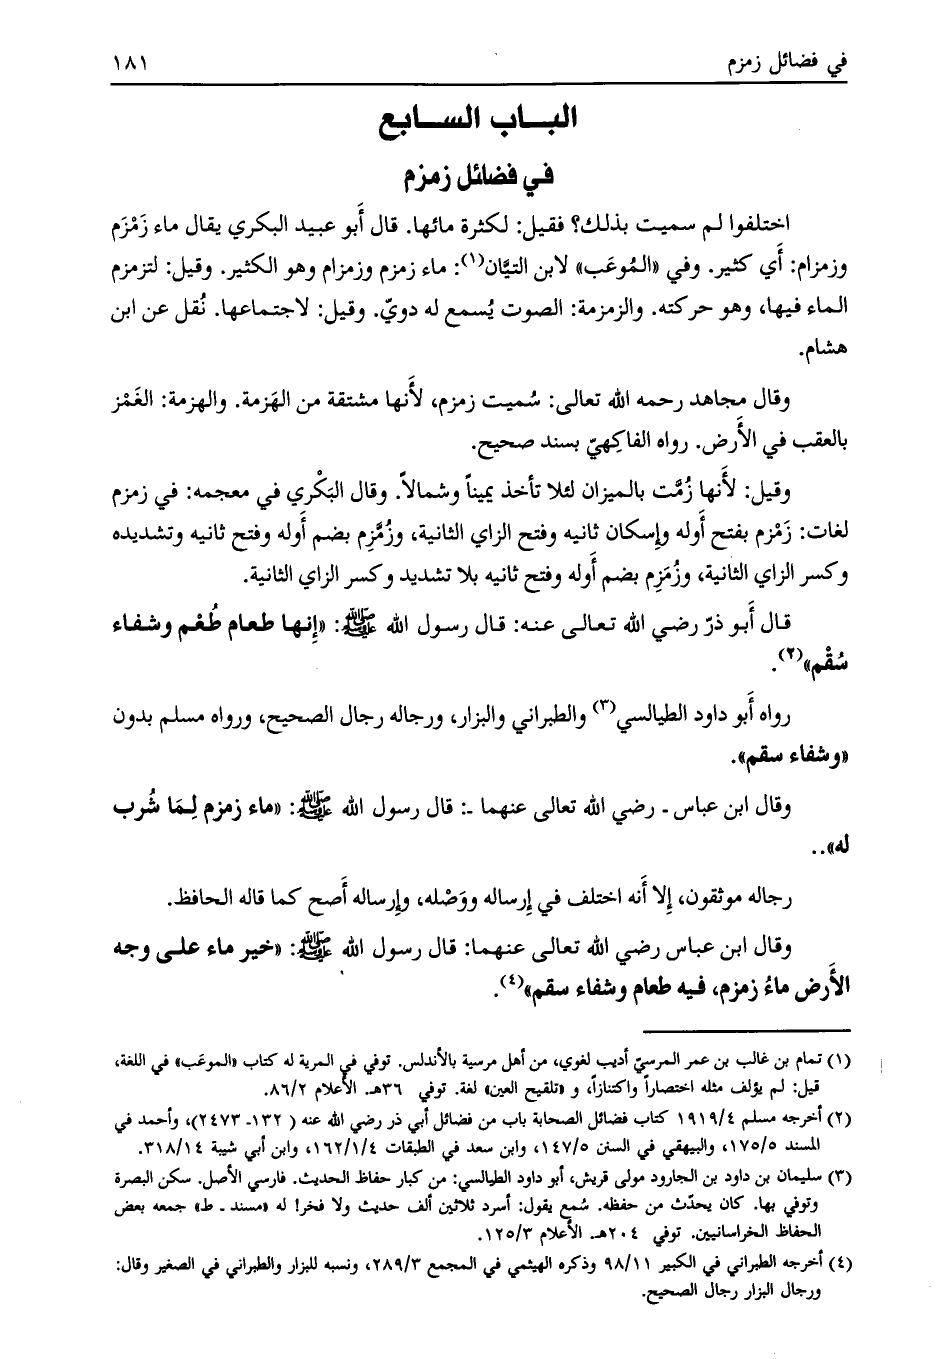 في فضائل زمزم ١٨١
الباب السابع
في فضائل زمزم
اختلفوا لم سميت بذلك؟ فقيل: لكثرة مائها. قال أَبو عبيد البكري يقال ماء زَمْزَم
وزمزام: أَي كثير. وفي «المُوعَب» لابن التيَّان(١): ماء زمزم وزمزام وهو الكثير. وقيل: لتزمزم
الماء فيها، وهو حركته. والزمزمة: الصوت يُسمع له دويّ. وقيل: لاجتماعها. نُقل عن ابن
هشام.
وقال مجاهد رحمه الله تعالى: سُميت زمزم، لأَنها مشتقة من الهَزمة. والهزمة: الغَمْز
بالعقب في الأَرض. رواه الفاكِهيّ بسند صحيح.
وقيل: لأَنها زُمَّت بالميزان لئلا تأخذ يميناً وشمالاً. وقال البَكْري في معجمه: في زمزم
لغات: زَمْزم بفتح أَوله وإسكان ثانيه وفتح الزاي الثانية، وزُمَّزِم بضم أَوله وفتح ثانيه وتشديده
وكسر الزاي الثانية، وزُمَزِم بضم أَوله وفتح ثانيه بلا تشديد وكسر الزاي الثانية.
قال أَبو ذرّ رضي الله تعالى عنه: قال رسول الله ﷺ: «إِنها طعام طُعْم وشفاء
سُقْم»(٢).
رواه أَبو داود الطيالسي(٣) والطبراني والبزار، ورجاله رجال الصحيح، ورواه مسلم بدون
«وشفاء سقم».
وقال ابن عباس ـ رضي الله تعالى عنهما ـ: قال رسول الله ﷺ: «ماء زمزم لِمَا شُرب
له»..
رجاله موثقون، إلا أَنه اختلف في إرساله ووَصْله، وإرساله أَصح كما قاله الحافظ.
وقال ابن عباس رضي الله تعالى عنهما: قال رسول الله ﷺ: «خير ماء على وجه
الأَرض ماءُ زمزم، فيه طعام وشفاء سقم»(٤).
(١) تمام بن غالب بن عمر المرسيّ أديب لغوي، من أهل مرسية بالأندلس. توفي في المرية له كتاب «الموعَب» في اللغة،
قيل: لم يؤلف مثله اختصاراً واكتنازاً، و «تلقيح العين» لغة. توفي ٣٦هـ. الأعلام ٨٦/٢.
(٢) أخرجه مسلم ١٩١٩/٤ كتاب فضائل الصحابة باب من فضائل أبي ذر رضي الله عنه ( ١٣٢ـ ٢٤٧٣)، وأحمد في
المسند ١٧٥/٥، والبيهقي في السنن ١٤٧/٥، وابن سعد في الطبقات ١٦٢/١/٤، وابن أبي شيبة ٣١٨/١٤.
(٣) سليمان بن داود بن الجارود مولى قريش، أبو داود الطيالسي: من كبار حفاظ الحديث. فارسي الأصل. سكن البصرة
وتوفي بها. كان يحدّث من حفظه. سُمع يقول: أسرد ثلاثين ألف حديث ولا فخر! له «مسند ـ ط» جمعه بعض
الحفاظ الخراسانيين. توفي ٢٠٤هـ. الأعلام ١٢٥/٣.
(٤) أخرجه الطبراني في الكبير ٩٨/١١ وذكره الهيثمي في المجمع ٢٨٩/٣، ونسبه للبزار والطبراني في الصغير وقال:
ورجال البزار رجال الصحيح.